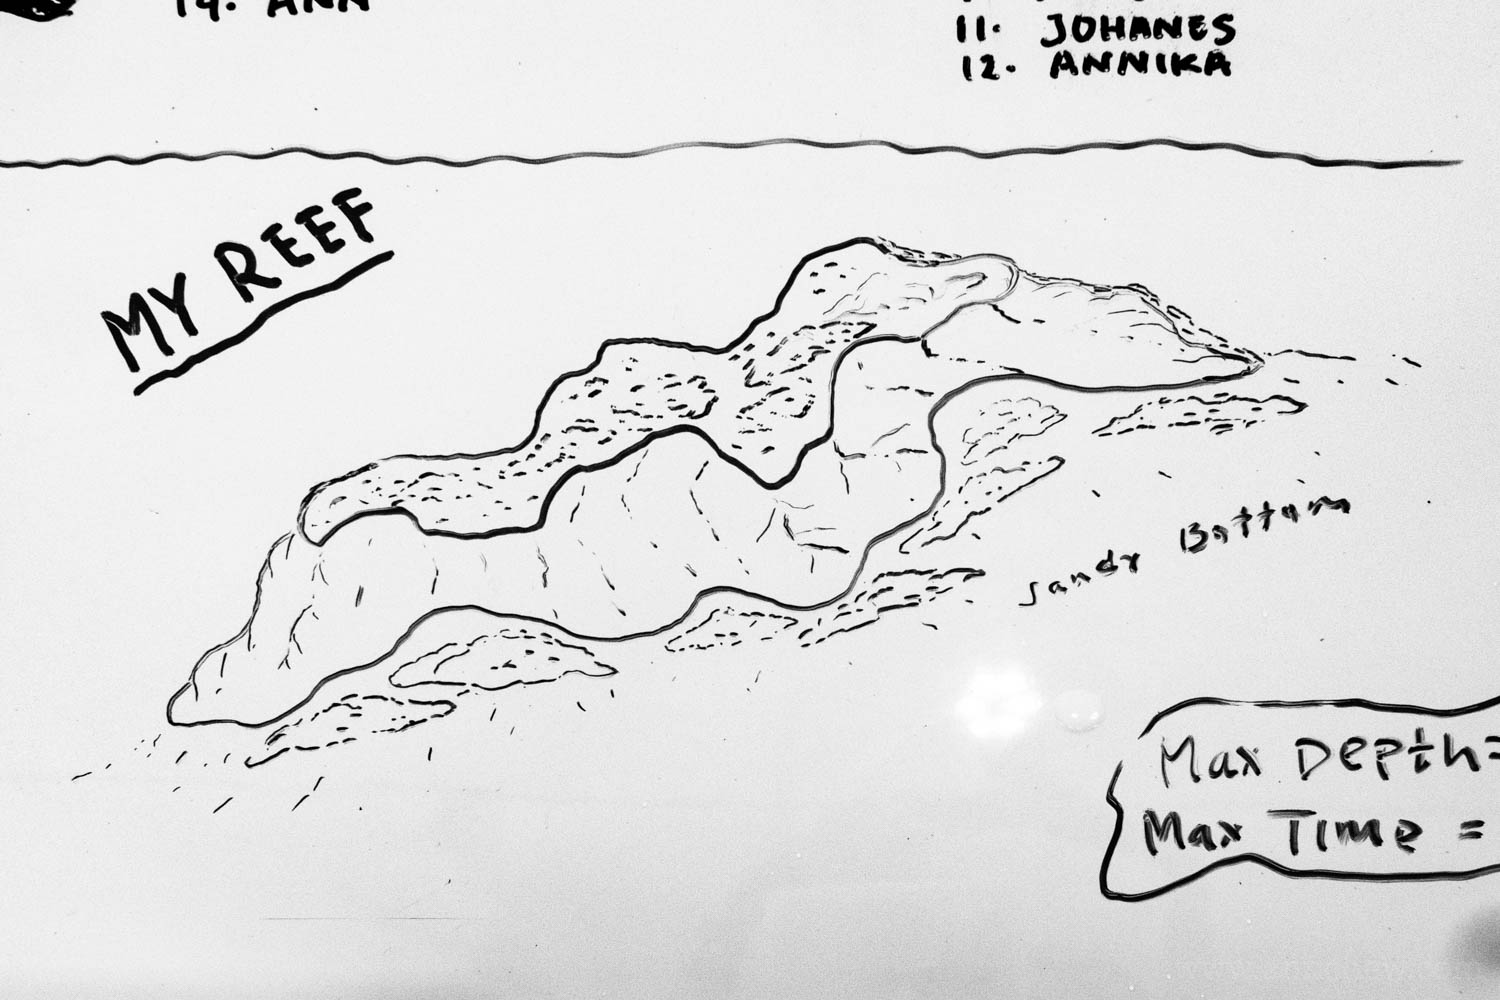 14. ANN
11. JOHANES
12. ANNIKA
MY REEF
Sandy Bottom
Max Depth=
Max Time =